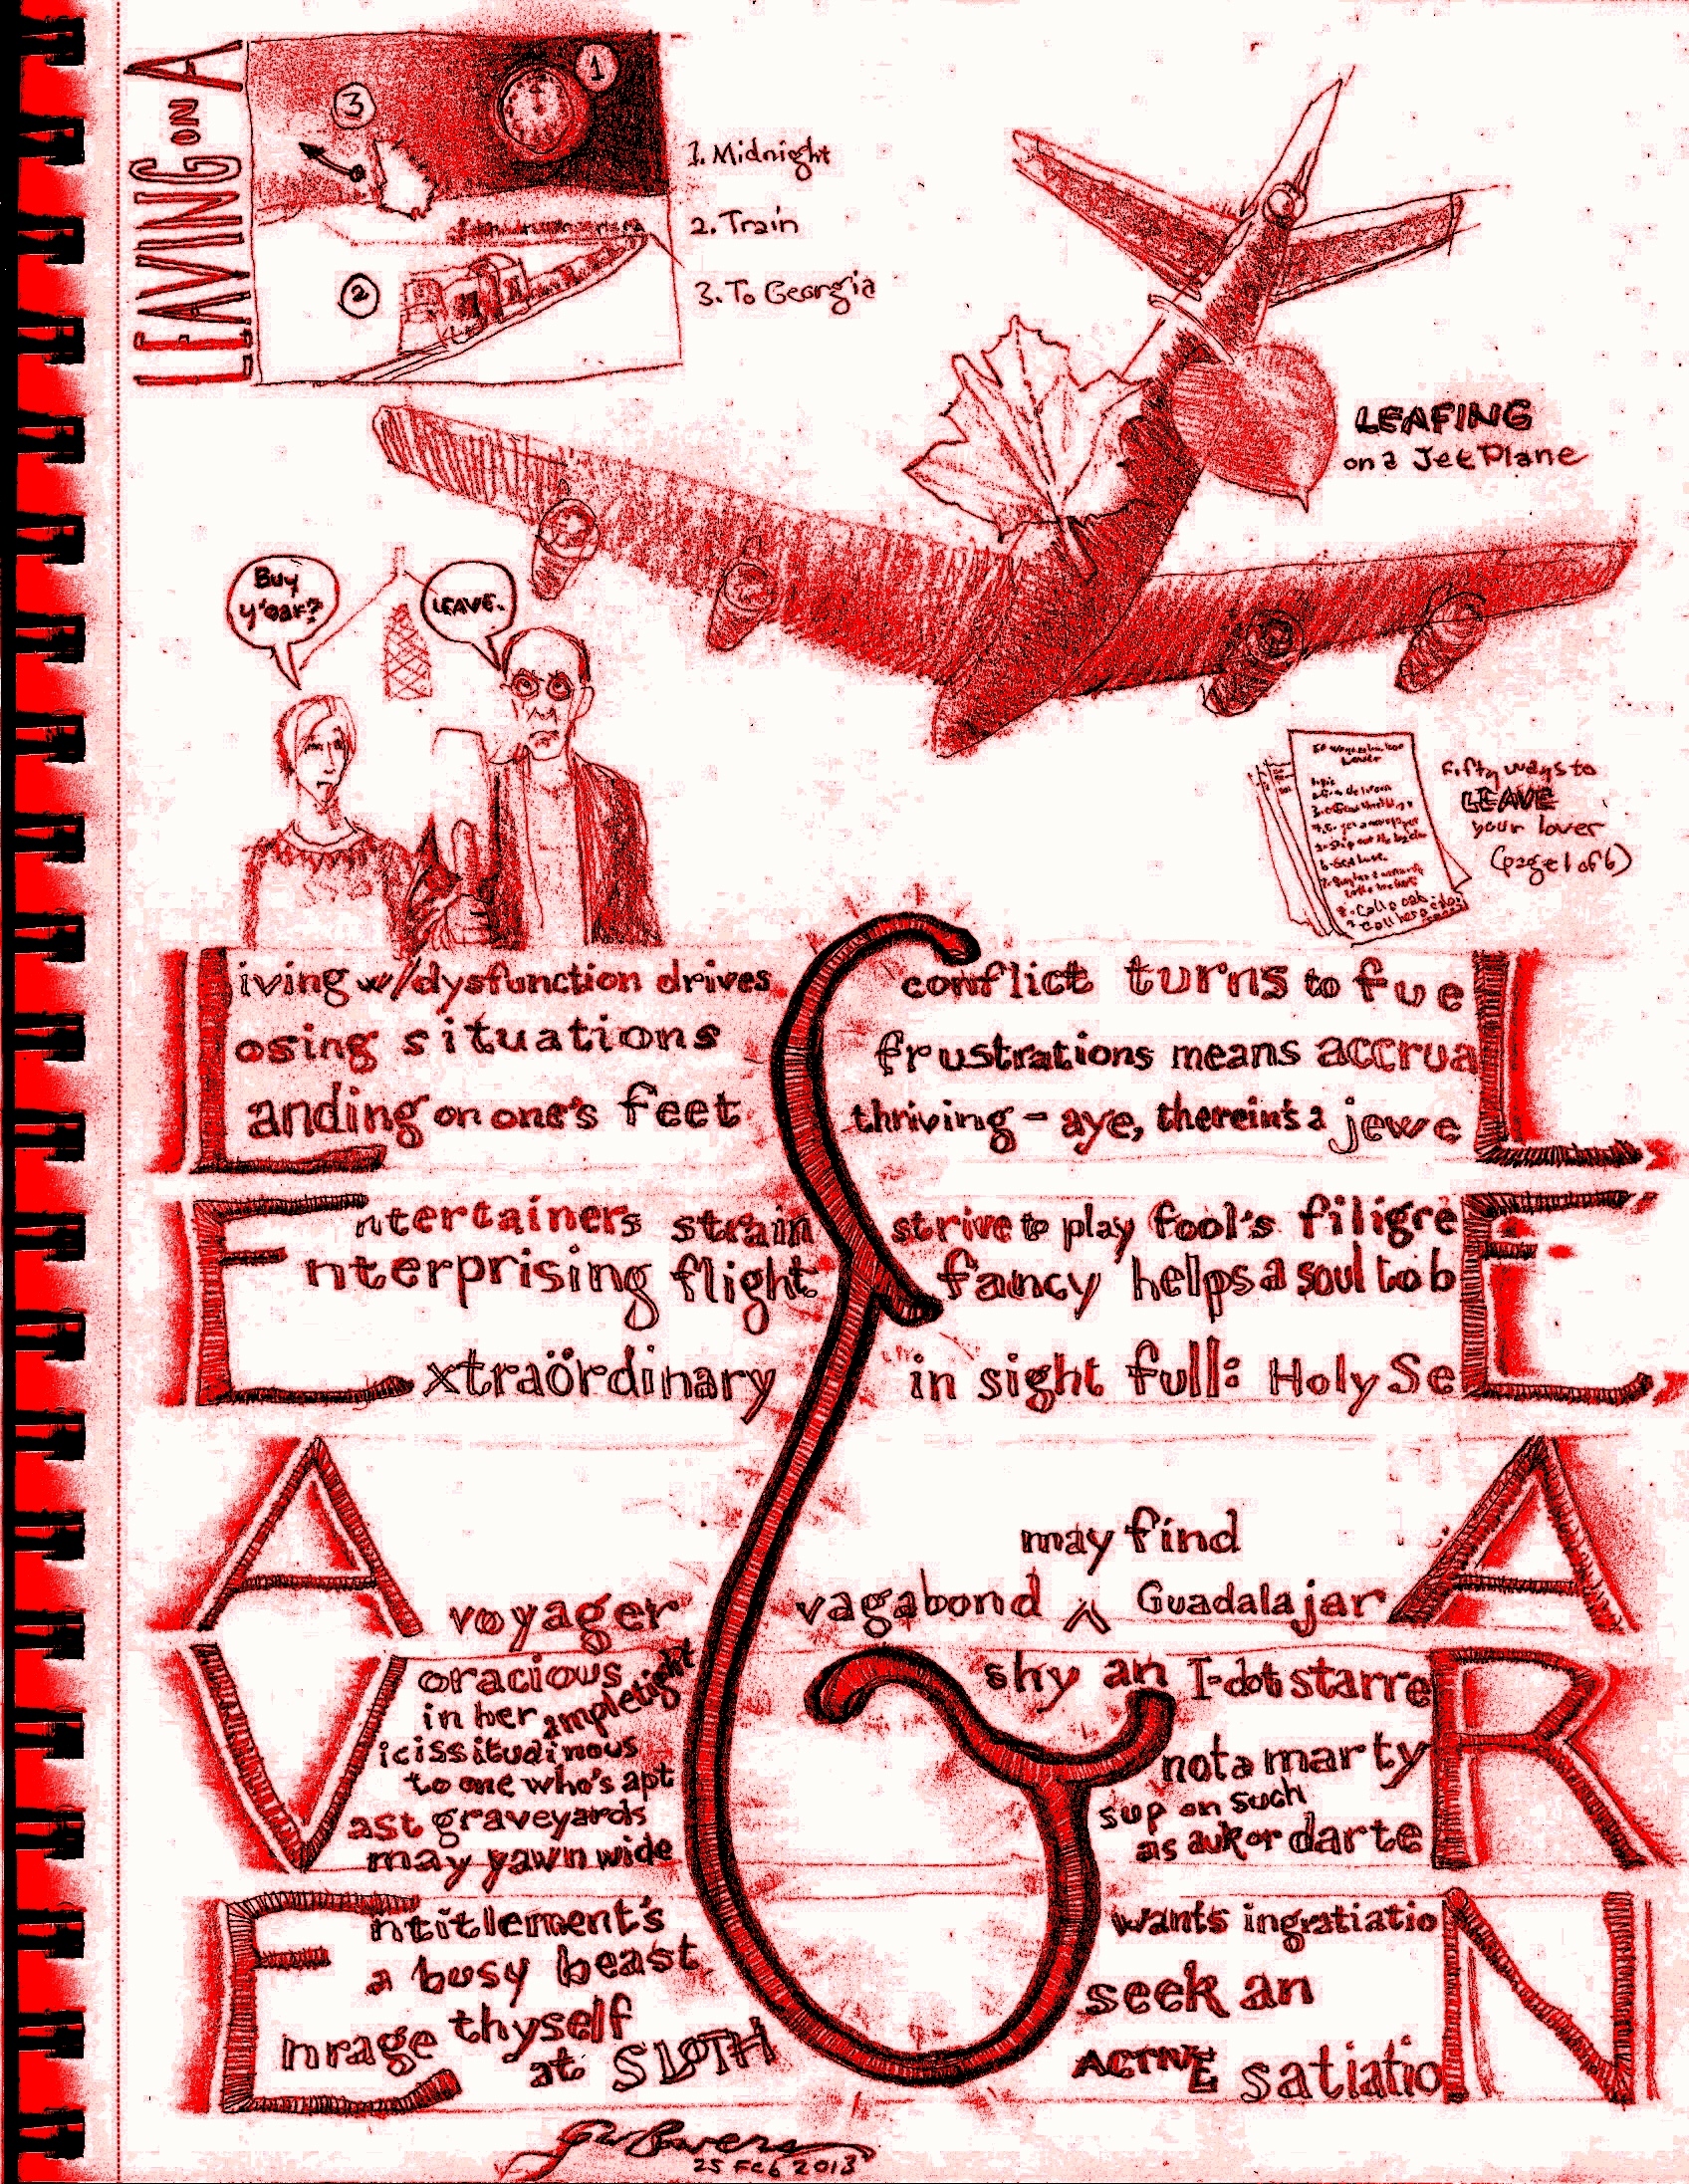 LEAVING ON A
1
3
2
1. Midnight
2. Train
3. To Georgia
LEAFING
on a Jet Plane
Buy
y'oak?
LEAVE.
Fifty ways to
LEAVE
your lover
(page 1 of 6)
Living w/dysfunction drives & conflict turns to fueL
Losing situations frustrations means accruaL
Landing on one's feet thriving - aye, therein's a jeweL
Entertainers strain strive to play fool's filigreE
Enterprising flight fancy helps a soul to bE
Extraördinary in sight full: Holy SeE
may find
A voyager vagabond ^ GuadalajarA
Voracious shy an I-dot starreR
in her ampletight
Vicissitudinous not a martyR
to one who's apt sup on such
Vast graveyards as auk or darteR
may yawn wide
Entitlement's wants ingratiatioN
a busy beast
seek an
Enrage thyself
at SLOTH ACTIVE satiatioN
25 Feb 2013